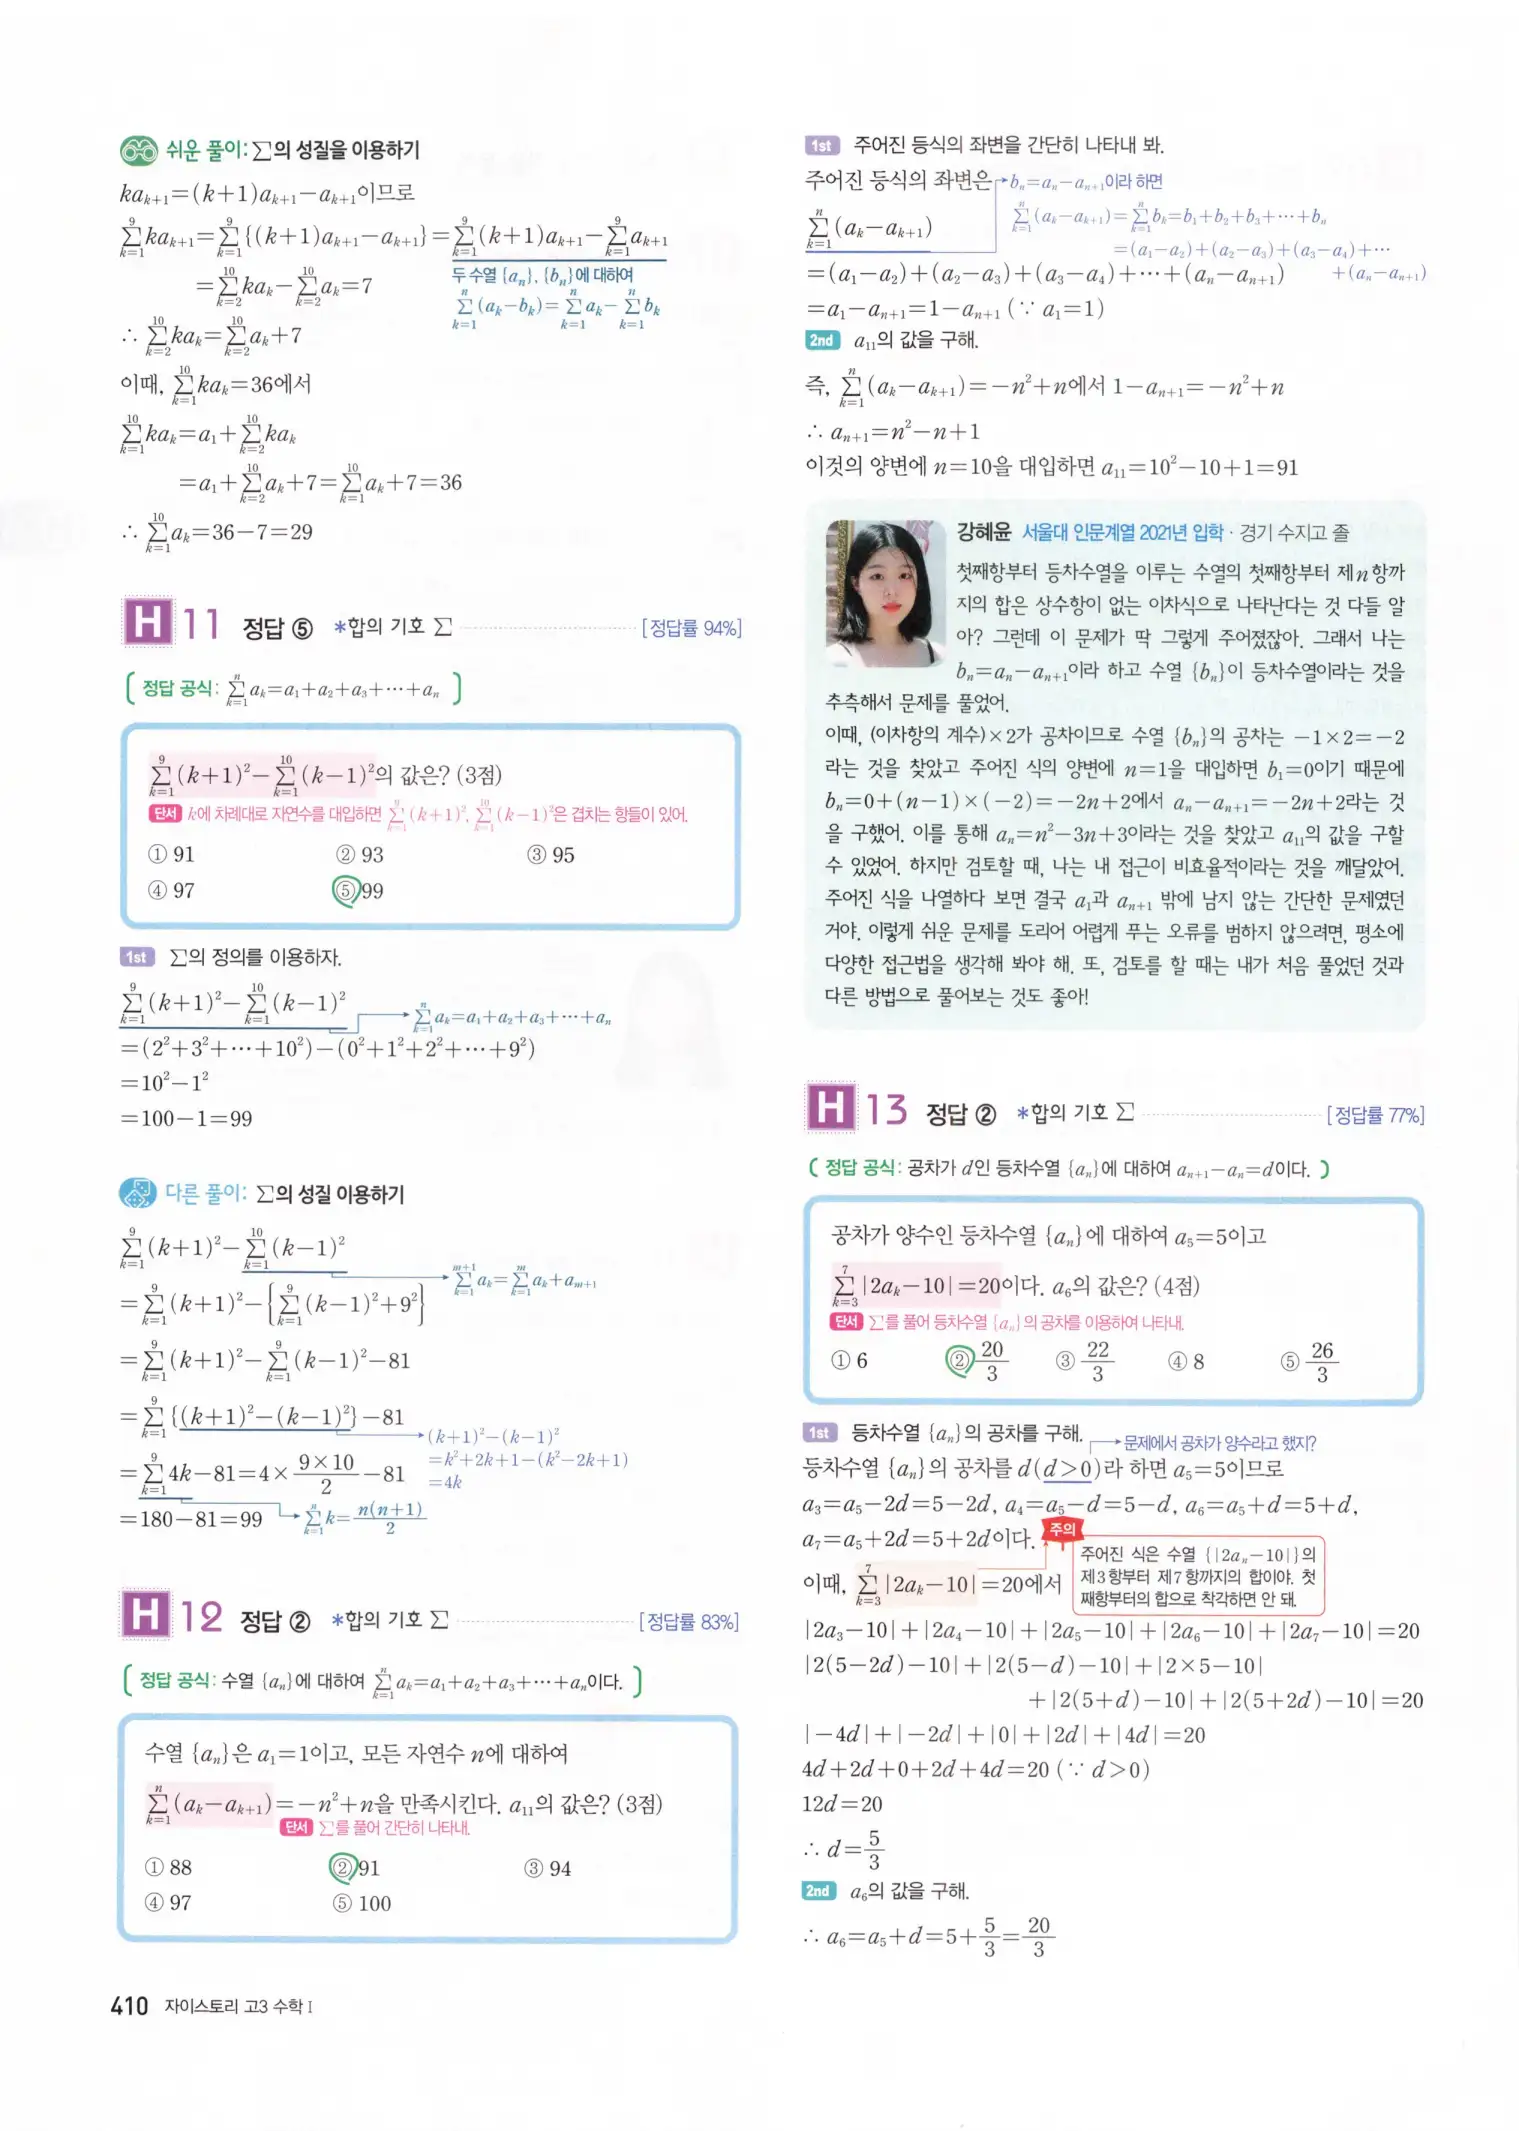 쉬운 풀이: ∑의 성질을 이용하기
ka_{k+1}=(k+1)a_{k+1}-a_{k+1}이므로
\sum_{k=1}^{9}ka_{k+1}=\sum_{k=1}^{9}{(k+1)a_{k+1}-a_{k+1}}=\sum_{k=1}^{9}(k+1)a_{k+1}-\sum_{k=1}^{9}a_{k+1}
=\sum_{k=2}^{10}ka_k-\sum_{k=2}^{10}a_k=7
두 수열 {a_n}, {b_n}에 대하여
\sum_{k=1}^{n}(a_k-b_k)=\sum_{k=1}^{n}a_k-\sum_{k=1}^{n}b_k
∴ \sum_{k=2}^{10}ka_k=\sum_{k=2}^{10}a_k+7
이때, \sum_{k=1}^{10}ka_k=36에서
\sum_{k=1}^{10}ka_k=a_1+\sum_{k=2}^{10}ka_k
=a_1+\sum_{k=2}^{10}a_k+7=\sum_{k=1}^{10}a_k+7=36
∴ \sum_{k=1}^{10}a_k=36-7=29
H 11 정답 ⑤ *합의 기호 ∑ [정답률 94%]
( 정답 공식: \sum_{k=1}^{n}a_k=a_1+a_2+a_3+⋯+a_n )
\sum_{k=1}^{9}(k+1)^2-\sum_{k=1}^{10}(k-1)^2의 값은? (3점)
단서 k에 차례대로 자연수를 대입하면 \sum_{k=1}^{9}(k+1)^2, \sum_{k=1}^{10}(k-1)^2은 겹치는 항들이 있어.
① 91 ② 93 ③ 95
④ 97 ⑤ 99
1st ∑의 정의를 이용하자.
\sum_{k=1}^{9}(k+1)^2-\sum_{k=1}^{10}(k-1)^2
\sum_{k=1}^{n}a_k=a_1+a_2+a_3+⋯+a_n
=(2^2+3^2+⋯+10^2)-(0^2+1^2+2^2+⋯+9^2)
=10^2-1^2
=100-1=99
다른 풀이: ∑의 성질 이용하기
\sum_{k=1}^{9}(k+1)^2-\sum_{k=1}^{10}(k-1)^2
\sum_{k=1}^{m+1}a_k=\sum_{k=1}^{m}a_k+a_{m+1}
=\sum_{k=1}^{9}(k+1)^2-{\sum_{k=1}^{9}(k-1)^2+9^2}
=\sum_{k=1}^{9}(k+1)^2-\sum_{k=1}^{9}(k-1)^2-81
=\sum_{k=1}^{9}{(k+1)^2-(k-1)^2}-81
(k+1)^2-(k-1)^2
=k^2+2k+1-(k^2-2k+1)
=4k
=\sum_{k=1}^{9}4k-81=4×\frac{9×10}{2}-81
=180-81=99
\sum_{k=1}^{n}k=\frac{n(n+1)}{2}
H 12 정답 ② *합의 기호 ∑ [정답률 83%]
( 정답 공식: 수열 {a_n}에 대하여 \sum_{k=1}^{n}a_k=a_1+a_2+a_3+⋯+a_n이다. )
수열 {a_n}은 a_1=1이고, 모든 자연수 n에 대하여
\sum_{k=1}^{n}(a_k-a_{k+1})=-n^2+n을 만족시킨다. a_{11}의 값은? (3점)
단서 ∑를 풀어 간단히 나타내.
① 88 ② 91 ③ 94
④ 97 ⑤ 100
410 자이스토리 고3 수학 I
1st 주어진 등식의 좌변을 간단히 나타내 봐.
주어진 등식의 좌변은
b_n=a_n-a_{n+1}이라 하면
\sum_{k=1}^{n}(a_k-a_{k+1})=\sum_{k=1}^{n}b_k=b_1+b_2+b_3+⋯+b_n
=(a_1-a_2)+(a_2-a_3)+(a_3-a_4)+⋯
+(a_n-a_{n+1})
\sum_{k=1}^{n}(a_k-a_{k+1})
=(a_1-a_2)+(a_2-a_3)+(a_3-a_4)+⋯+(a_n-a_{n+1})
=a_1-a_{n+1}=1-a_{n+1} (∵ a_1=1)
2nd a_{11}의 값을 구해.
즉, \sum_{k=1}^{n}(a_k-a_{k+1})=-n^2+n에서 1-a_{n+1}=-n^2+n
∴ a_{n+1}=n^2-n+1
이것의 양변에 n=10을 대입하면 a_{11}=10^2-10+1=91
강혜윤 서울대 인문계열 2021년 입학 · 경기 수지고 졸
첫째항부터 등차수열을 이루는 수열의 첫째항부터 제n항까
지의 합은 상수항이 없는 이차식으로 나타난다는 것 다들 알
아? 그런데 이 문제가 딱 그렇게 주어졌잖아. 그래서 나는
b_n=a_n-a_{n+1}이라 하고 수열 {b_n}이 등차수열이라는 것을
추측해서 문제를 풀었어.
이때, (이차항의 계수)×2가 공차이므로 수열 {b_n}의 공차는 -1×2=-2
라는 것을 찾았고 주어진 식의 양변에 n=1을 대입하면 b_1=0이기 때문에
b_n=0+(n-1)×(-2)=-2n+2에서 a_n-a_{n+1}=-2n+2라는 것
을 구했어. 이를 통해 a_n=n^2-3n+3이라는 것을 찾았고 a_{11}의 값을 구할
수 있었어. 하지만 검토할 때, 나는 내 접근이 비효율적이라는 것을 깨달았어.
주어진 식을 나열하다 보면 결국 a_1과 a_{n+1} 밖에 남지 않는 간단한 문제였던
거야. 이렇게 쉬운 문제를 도리어 어렵게 푸는 오류를 범하지 않으려면, 평소에
다양한 접근법을 생각해 봐야 해. 또, 검토를 할 때는 내가 처음 풀었던 것과
다른 방법으로 풀어보는 것도 좋아!
H 13 정답 ② *합의 기호 ∑ [정답률 77%]
( 정답 공식: 공차가 d인 등차수열 {a_n}에 대하여 a_{n+1}-a_n=d이다. )
공차가 양수인 등차수열 {a_n}에 대하여 a_5=5이고
\sum_{k=3}^{7}|2a_k-10|=20이다. a_6의 값은? (4점)
단서 ∑를 풀어 등차수열 {a_n}의 공차를 이용하여 나타내.
① 6 ② \frac{20}{3} ③ \frac{22}{3} ④ 8 ⑤ \frac{26}{3}
1st 등차수열 {a_n}의 공차를 구해.
문제에서 공차가 양수라고 했지?
등차수열 {a_n}의 공차를 d(d>0)라 하면 a_5=5이므로
a_3=a_5-2d=5-2d, a_4=a_5-d=5-d, a_6=a_5+d=5+d,
a_7=a_5+2d=5+2d이다.
주의
주어진 식은 수열 {|2a_n-10|}의
제3항부터 제7항까지의 합이야. 첫
째항부터의 합으로 착각하면 안 돼.
이때, \sum_{k=3}^{7}|2a_k-10|=20에서
|2a_3-10|+|2a_4-10|+|2a_5-10|+|2a_6-10|+|2a_7-10|=20
|2(5-2d)-10|+|2(5-d)-10|+|2×5-10|
+|2(5+d)-10|+|2(5+2d)-10|=20
|-4d|+|-2d|+|0|+|2d|+|4d|=20
4d+2d+0+2d+4d=20 (∵ d>0)
12d=20
∴ d=\frac{5}{3}
2nd a_6의 값을 구해.
∴ a_6=a_5+d=5+\frac{5}{3}=\frac{20}{3}